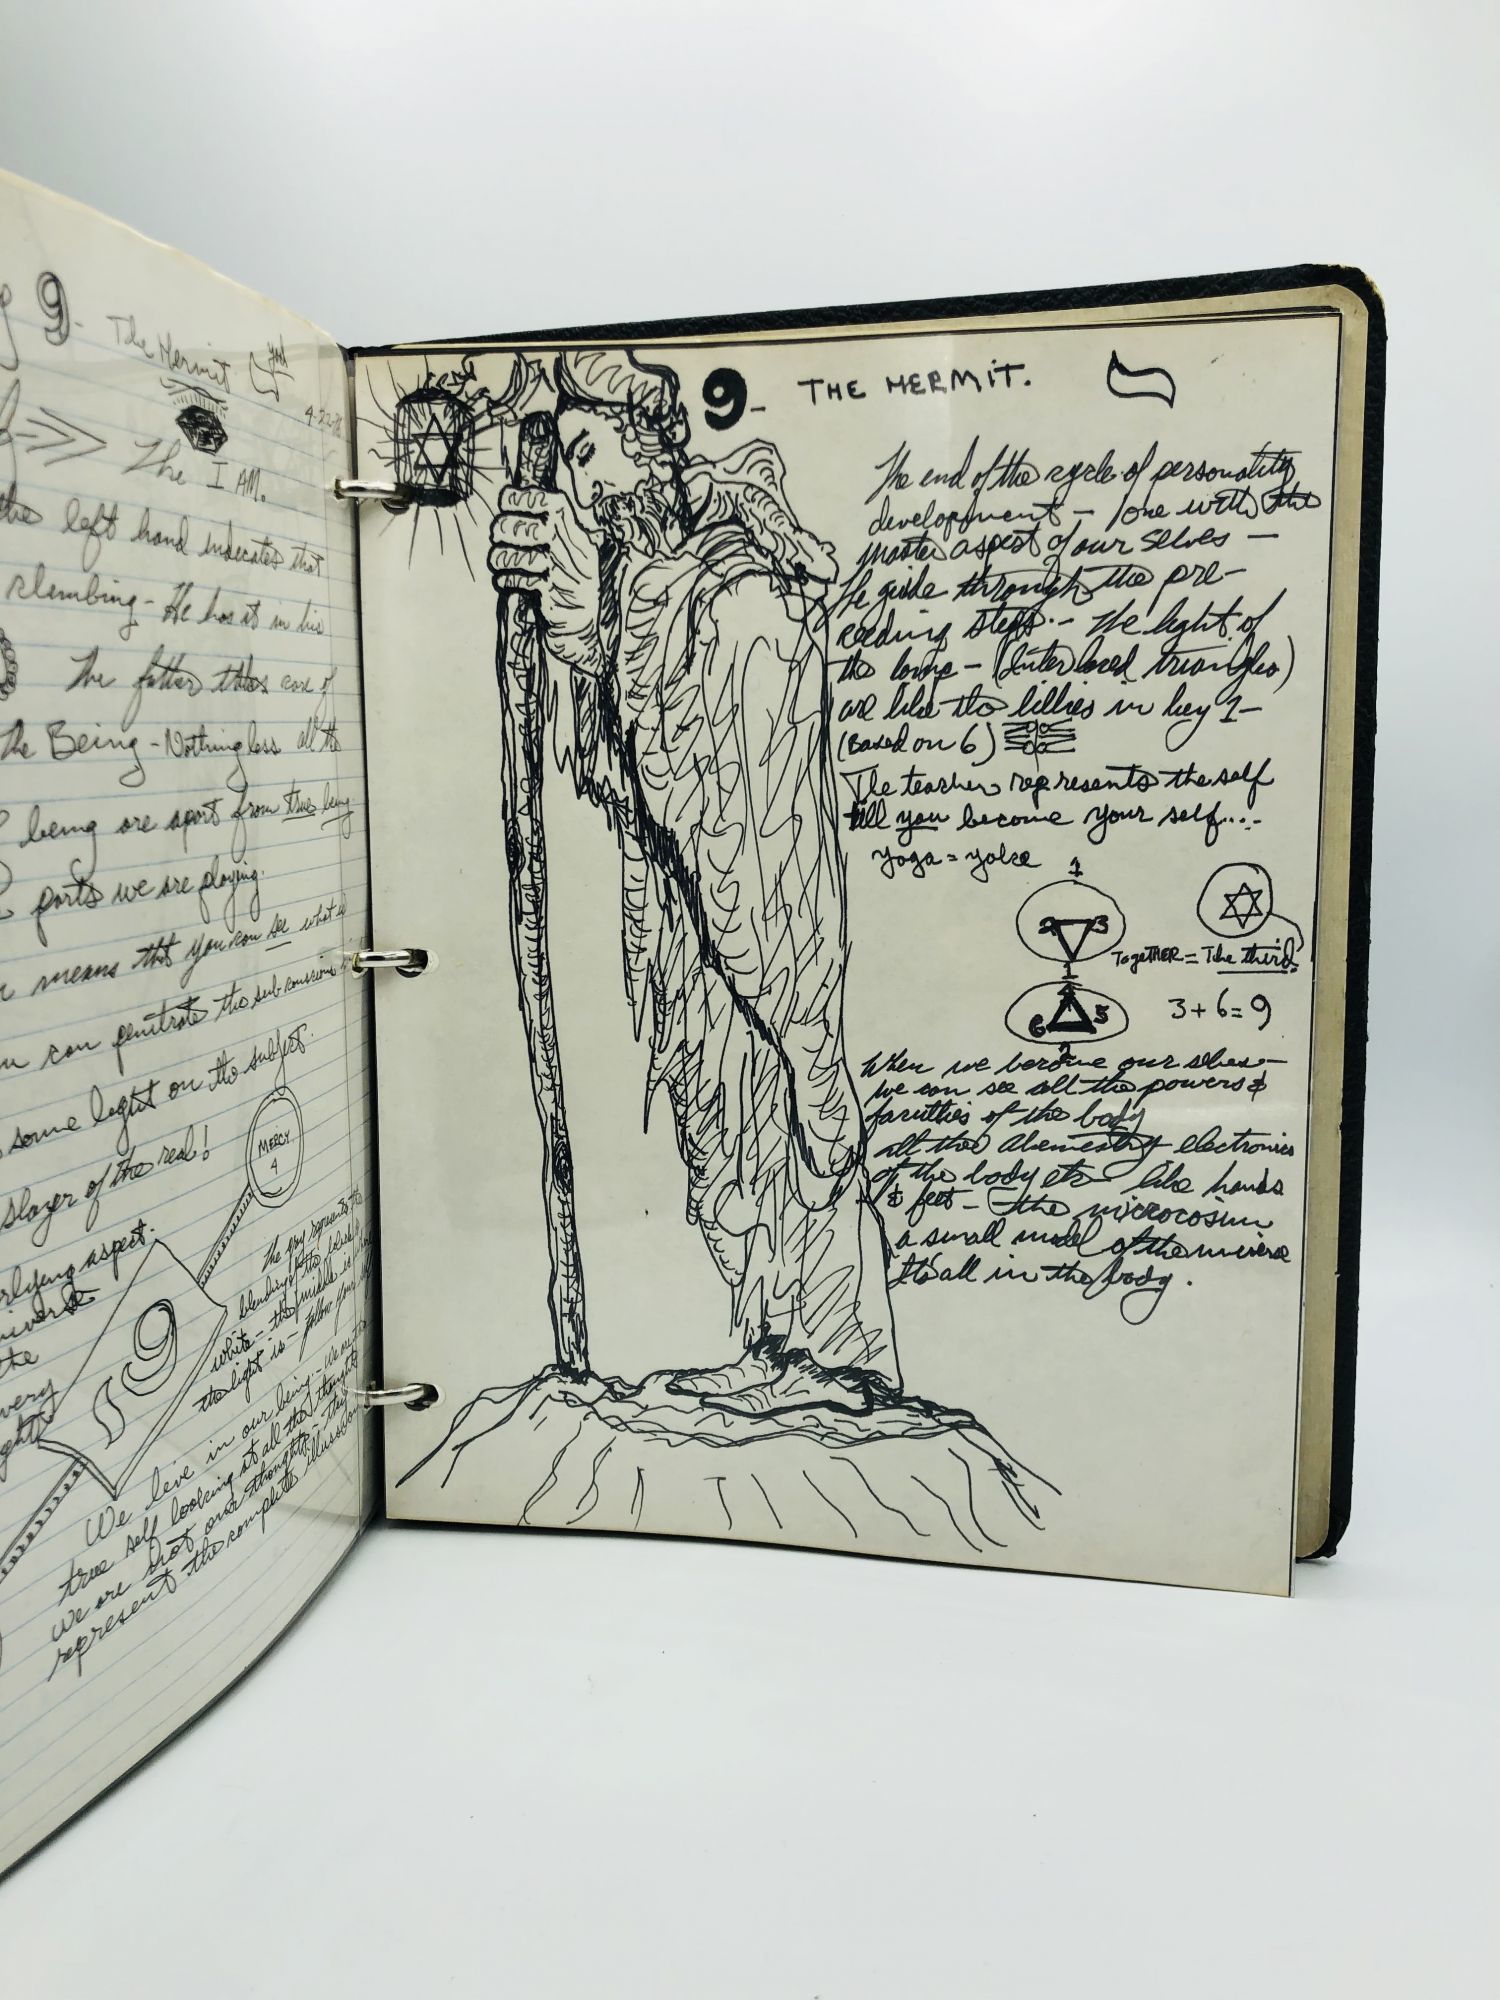 9-
The Hermit
Yod
The I AM.
the left hand indecates that
climbing - He has it in his
The father thus are of
The Being - Nothing less all the
being are apart from true being
parts we are playing.
means that you can see what is
can penitrate the subconscious
some light on the subject.
slayer of the real!
MERCY
4
erlying aspect.
niverse
the
very
The grey represents the
blending of the black &
white - the middle is
the light is - follow your
9
We live in our being - We are the
true self looking at all the thoughts
We are not our thoughts - they
represent the complete illusion
9- THE HERMIT. י
The end of the cycle of personality
development - one with the
master aspect of our selves -
The guide through the pre-
ceeding steps. - The light of
the lamp - (Interlaced triangles)
are like the lillies in key 1-
(Based on 6)
The teacher represents the self
till you become your self....
Yoga = yoke
1
2 3
1
Together = The third
4
6 5
2
3 + 6 = 9
When we become our selves -
we can see all the powers &
faculties of the body
all the alemestry electronics
of the body etc like hands
& feet - the microcosum
a small model of the universe
It's all in the body.